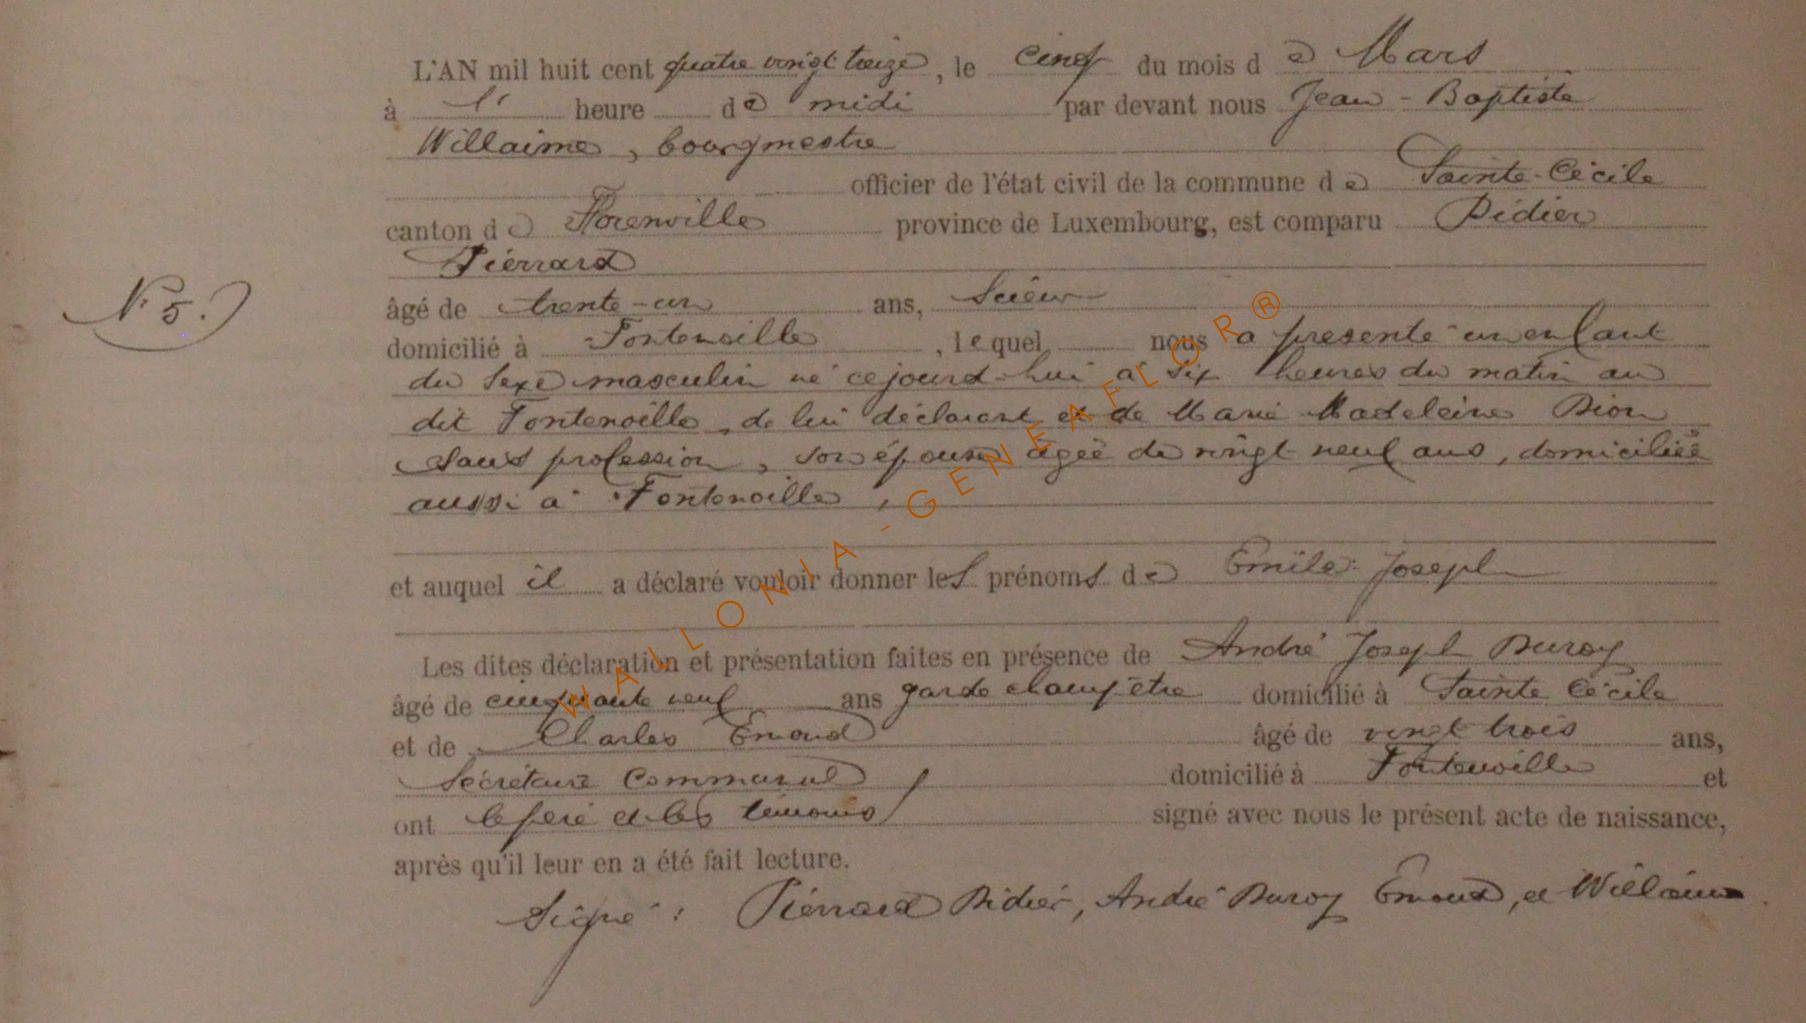 L'AN mil huit cent quatre vingt treize, le cinq du mois de Mars
à 1 heure de midi par devant nous Jean-Baptiste
Willaime, bourgmestre
officier de l'état civil de la commune de Sainte-Cécile
canton de Florenville province de Luxembourg, est comparu Didier
Piérrard
N° 5.
âgé de trente-un ans, Scieur
domicilié à Fontenoille, lequel nous a presenté un enfant
du sexe masculin né cejourd-hui à six heures du matin au
dit Fontenoille, de lui déclarant et de Marie Madeleine Dion
sans profession, son épouse agée de vingt neuf ans, domiciliée
aussi à Fontenoille,
et auquel il a déclaré vouloir donner les prénoms de Emile Joseph
Les dites déclaration et présentation faites en présence de André Joseph Duroy
âgé de cinquante neuf ans garde champêtre domicilié à Sainte Cécile
et de Charles Emond âgé de vingt trois ans,
Sécrétaire Communal domicilié à Fontenoille et
ont le père et les témoins signé avec nous le présent acte de naissance,
après qu'il leur en a été fait lecture.
Signé : Piérrard Didier, André Duroy Emond, et Willaime
WALLONIA-GENEAFLOR®